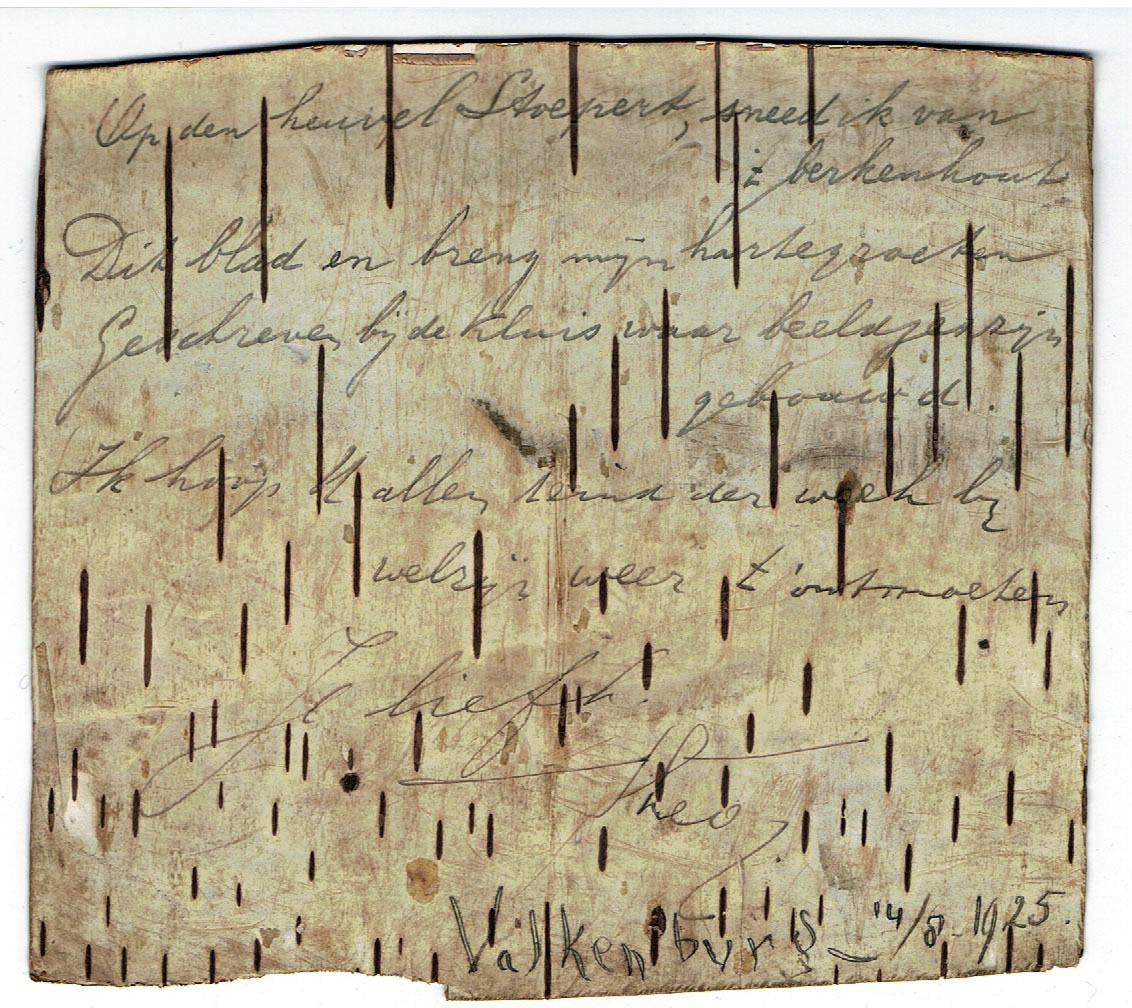 Op den heuvel Stoepert, sneed ik van
't berkenhout
Dit blad en breng mijn hartegroeten
Geschreven bij de Kluis waar beeldjes zijn
gebouwd.
Ik hoop U allen teind der week bij
welzijn weer t'ontmoeten
liefh.
Theo
Valkenburg - 14/8-1925.